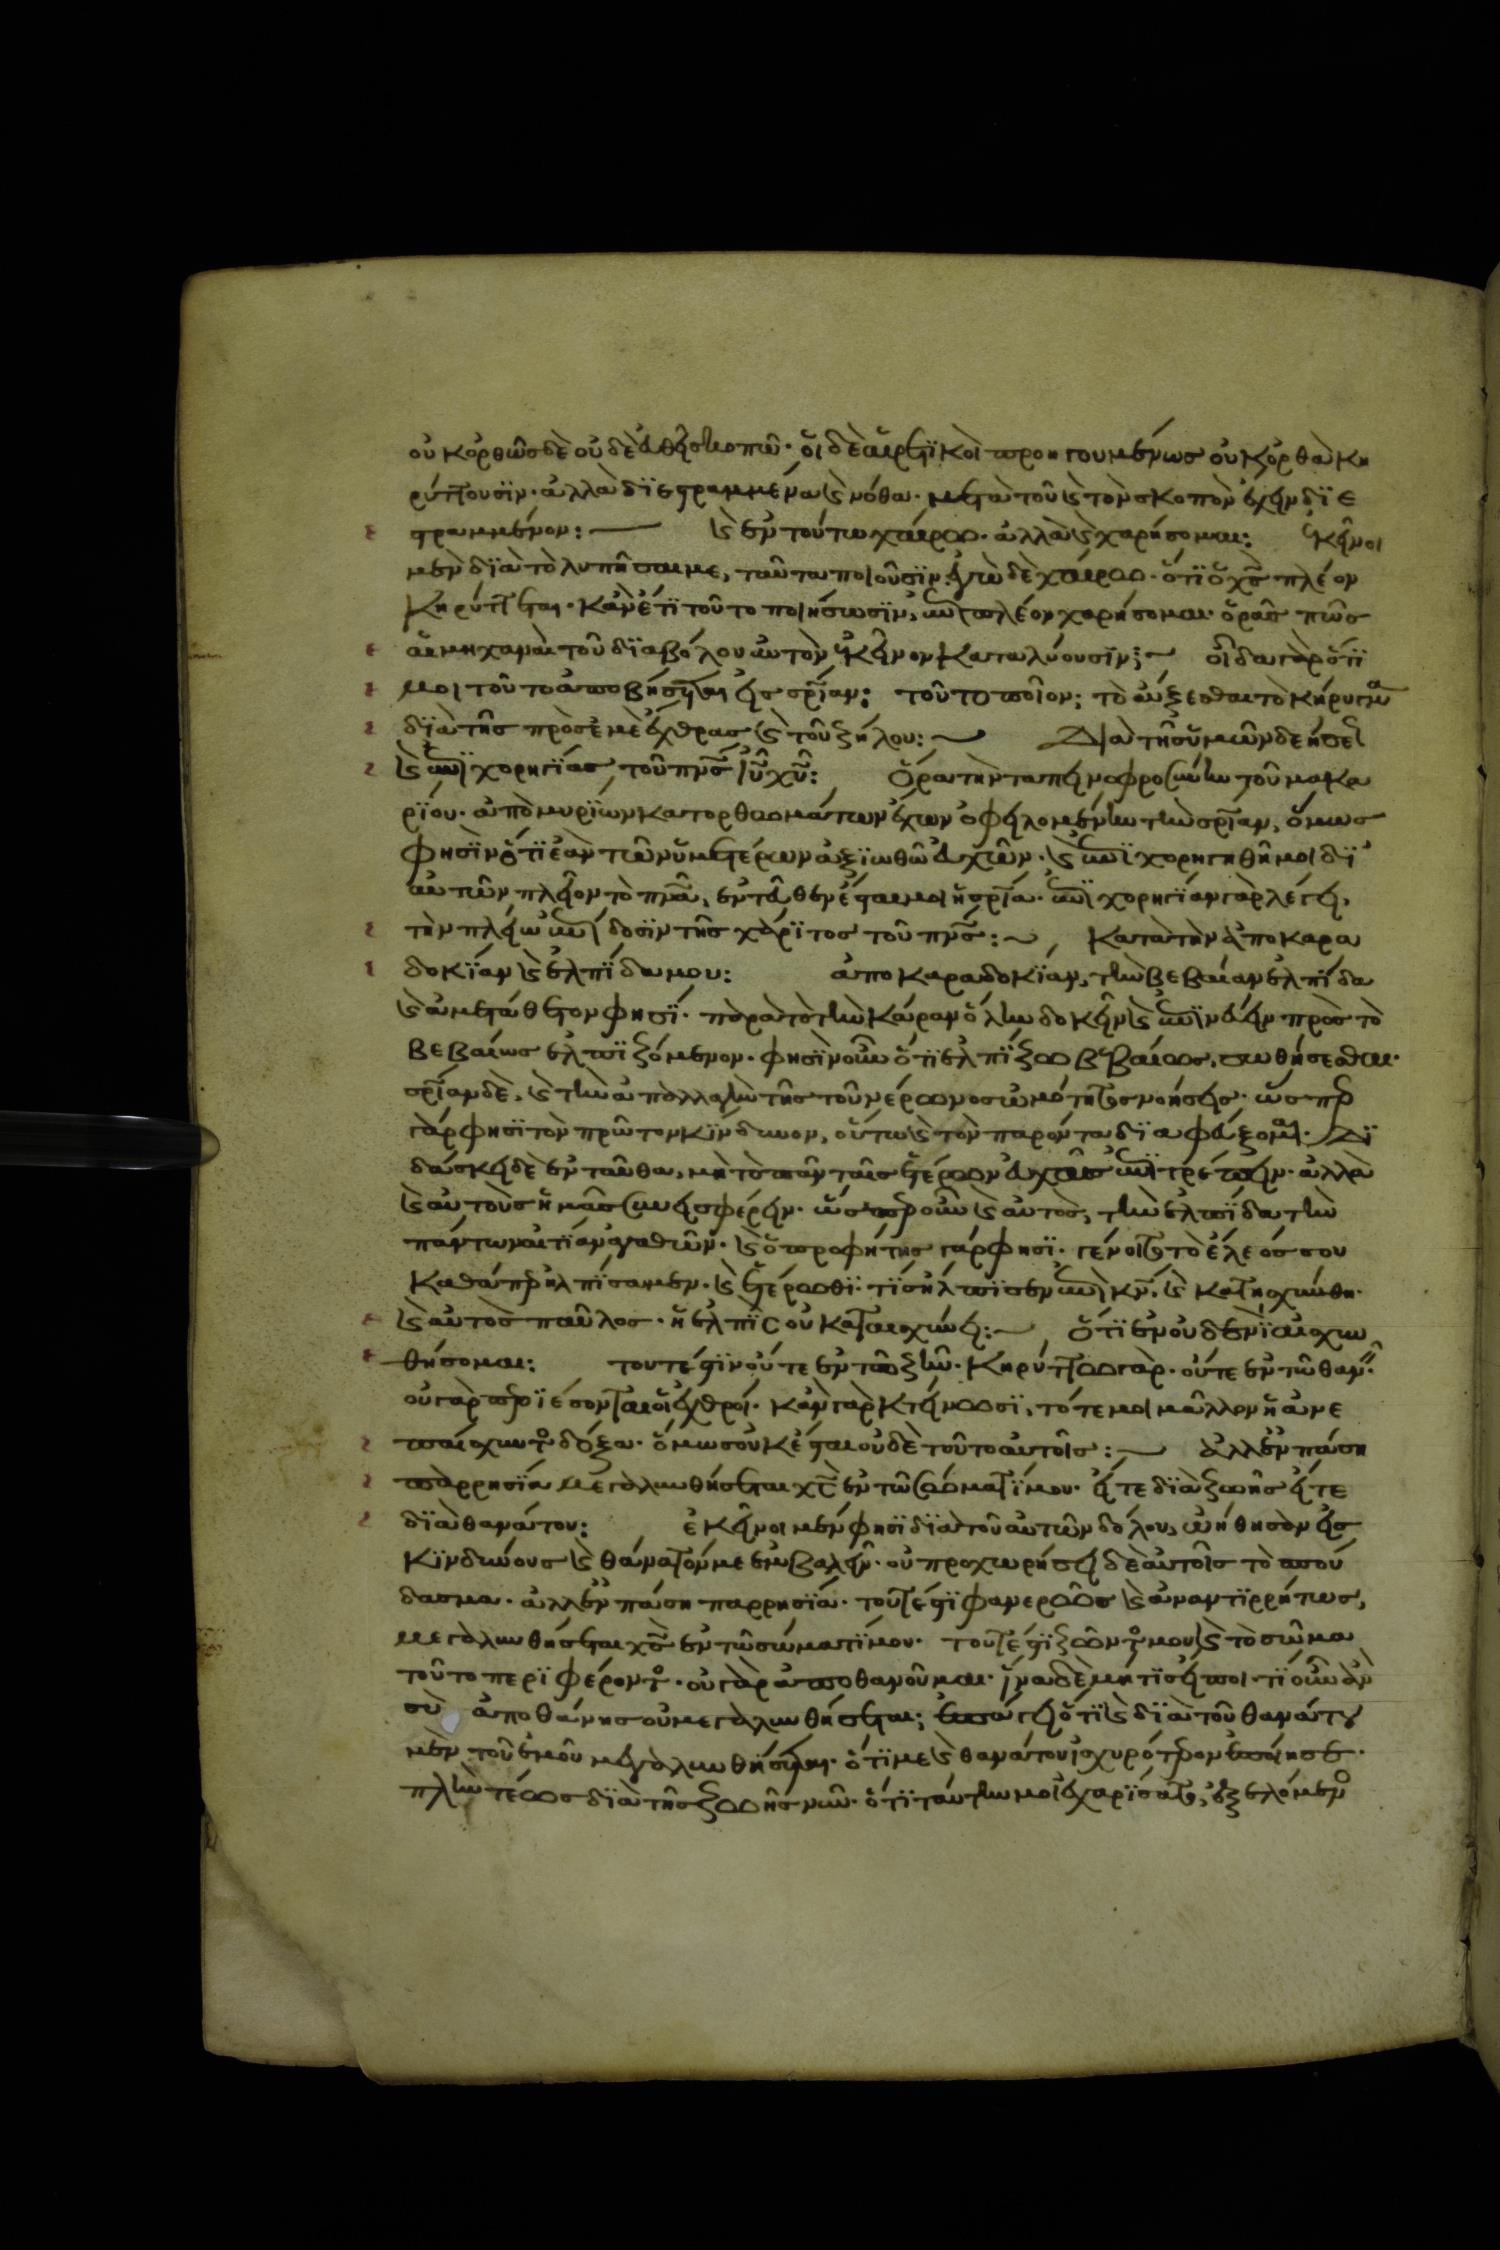 οὐκ ὀρθῶς δὲ οὐδὲ εὐθεῖ σκοπῶ· οἱ δὲ αἱρετϊκοὶ προηγουμένως οὐκ ὀρθὰ κη
ρύττουσϊν· ἀλλὰ δϊεστραμμένα καὶ νόθα· μετὰ τοῦ καὶ τὸν σκοπὸν ἔχειν δϊε
στραμμένον: καὶ ἐν τούτω χαίρω· ἀλλὰ καὶ χαρήσομαι: ἐκεῖνοι
μὲν δϊὰ τὸ λυπῆσαι με, ταῦτα ποιοῦσϊν· ἐγὼ δὲ χαίρω· ὅτϊ ὁ χς πλέον
κηρύττεται· κἂν ἔτϊ τοῦτο ποιήσωσϊν, ἐπιπλέον χαρήσομαι· ὅρα πῶς
αἱ μηχαναὶ τοῦ δϊαβόλου αὐτὸν ἐκεῖνον καταλύουσϊν: οἶδα γὰρ ὅτϊ
μοι τοῦτο ἀποβήσεται εἰς σρίαν: τοῦτο ποῖον; τὸ αὔξεσθαι τὸ κήρυγμα
δϊὰ τῆς πρὸς ἐμὲ ἔχθρας καὶ τοῦ ζήλου: Διὰ τῆς ὑμῶν δεήσε
καὶ ἐπϊχορηγίας τοῦ πνς ἰυ χυ: ὅρα τὴν ταπεινοφροσύνην τοῦ μακα
ρϊου· ἀπὸ μυρϊων κατορθωμάτων ἔχων ὀφειλομένην τὴν σρίαν, ὅμως
φησὶν ὅτϊ ἐὰν τῶν ὑμετέρων ἀξϊωθῶ εὐχῶν· καὶ ἐπϊχορηγηθῆ μοι δϊ
αὐτῶν πλεῖον τὸ πνα, ἐντεῦθεν ἔσται μοι ἡ σρία· ἐπϊχορηγϊαν γὰρ λέγει,
τὴν πλείω ἐπίδοσϊν τῆς χάρϊτος τοῦ πνς: κατὰ τὴν ἀποκαρα
δοκϊαν καὶ ἐλπϊδα μου: ἀποκαραδοκϊαν, τὴν βεβαίαν ἐλπϊδα
καὶ ἀμετάθετον φησϊ· παρὰ τὸ τὴν κάραν ὅλην δοκεῖν καὶ ἐπϊνεύειν πρὸς τὸ
βεβαίως ἐλπϊζόμενον· φησϊν οὖν ὅτϊ ἐλπϊζω βεβαίως, σωθήσεσθαι·
σρίαν δὲ, καὶ τὴν ἀπαλλαγὴν τῆς τοῦ νέρωνος ὠμότητος νοήσεις· ὥσπερ
γάρ φησϊ τὸν πρῶτον κϊνδυνον, οὕτω καὶ τὸν παρόντα δϊαφεύξομαι· Δϊ
δάσκει δὲ ἐνταῦθα, μὴ τὸ πᾶν ταῖς ἑτέρων εὐχαῖς ἐπϊτρέπειν· ἀλλὰ
καὶ αὐτοὺς ἡμᾶς συνεισφέρειν· ὥσπερ οὖν καὶ αὐτὸς, τὴν ἐλπϊδα τὴν
πάντων αἰτϊαν ἀγαθῶν· καὶ ὁ προφήτης γάρ φησϊ· γένοιτο τὸ ἔλεός σου
καθάπερ ἠλπϊσαμεν· καὶ ἑτέρωθϊ· τϊς ἤλπϊσεν ἐπὶ κν, καὶ κατησχύνθη·
καὶ αὐτὸς παῦλος· ἡ ἐλπὶς οὐ καταισχύνει: ὅτϊ ἐν οὐδενϊ αἰσχυν
θήσομαι: τουτέστϊν οὔτε ἐν τῶ ζῆν· κηρύττω γάρ· οὔτε ἐν τῶ θανεῖν·
οὐ γὰρ περιέσονται οἱ ἐχθροί· κἂν γὰρ κτείνωσϊ, τότε μοι μᾶλλον ἡ ἀνε
παίσχυντος δόξα· ὅμως οὐκ ἔσται οὐδὲ τοῦτο αὐτοῖς: ἀλλ' ἐν πάση
παρρησϊα μεγαλυνθήσεται χς ἐν τῶ σώματϊ μου· εἴτε δϊὰ ζωῆς εἴτε
δϊὰ θανάτου: ἐκεῖνοι μέν φησϊ δϊὰ τοῦ αὐτῶν δόλου, ὠήθησαν εἰς
κϊνδύνους καὶ θάνατόν με ἐμβαλεῖν· οὐ προχωρήσει δὲ αὐτοῖς τὸ σπού
δασμα· ἀλλ' ἐν πάση παρρησϊα· τουτέστϊ φανερῶς καὶ ἀναντϊρρήτως,
μεγαλυνθήσεται χς ἐν τῶ σώματϊ μου· τουτέστϊ ζῶντός μου καὶ τὸ σῶμα
τοῦτο περϊφέροντος· οὐ γὰρ ἀποθανοῦμαι· ἵνα δὲ μή τϊς εἴποι· τϊ οὖν ἐὰν
σὺ ἀποθάνης οὐ μεγαλυνθήσεται; ἐπάγει ὅτϊ καὶ δϊὰ τοῦ θανάτου
μὲν τοῦ ἐμοῦ μεγαλυνθήσεται· ὅτϊ με καὶ θανάτου ἰσχυρότερον ἐποίησε·
πλὴν τέως δϊὰ τῆς ζωῆς νῦν· ὅτϊ ταύτην μοι ἐχαρϊσατο, ἐξελόμενος